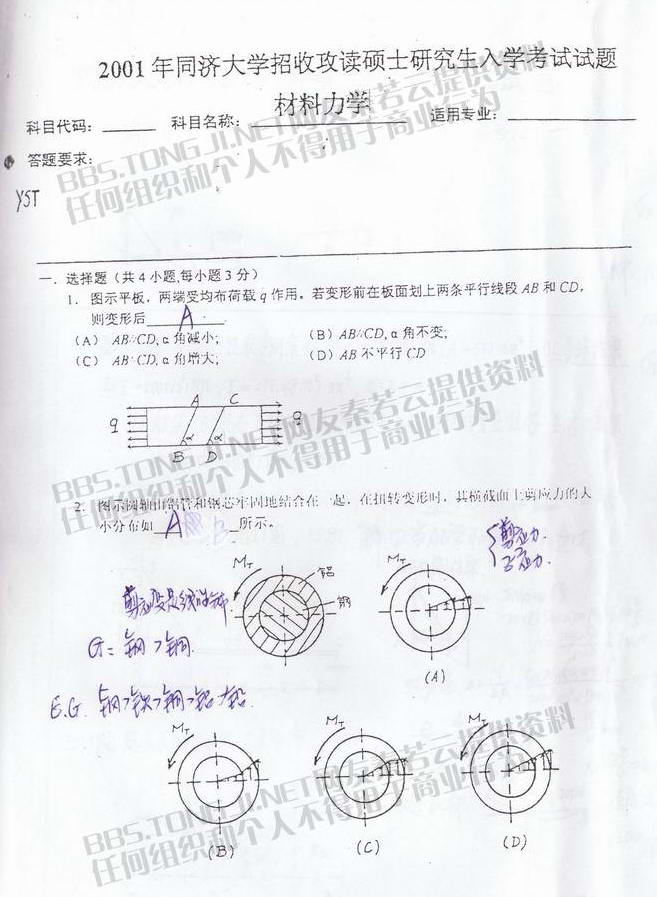 2001 年同济大学招收攻读硕士研究生入学考试试题
材料力学
科目代码: 科目名称: 适用专业:
答题要求:
YST
一. 选择题（共 4 小题,每小题 3 分）
1. 图示平板，两端受均布荷载 q 作用。若变形前在板面划上两条平行线段 AB 和 CD，
则变形后 A .
(A) AB∥CD, α 角减小; (B) AB∥CD, α 角不变;
(C) AB∥CD, α 角增大; (D) AB 不平行 CD
A C
q q
α α
B D
2. 图示圆轴由铝管和钢芯牢固地结合在一起，在扭转变形时，其横截面上剪应力的大
小分布如 A B 所示。
剪应力.
正应力.
MT 铝 MT
钢
G= 钢>铜.
(A)
E.G. 钢>铁>铜>铝>铅.
MT MT MT
(B) (C) (D)
BBS.TONGJI.NET网友秦若云提供资料
任何组织和个人不得用于商业行为
BBS.TONGJI.NET网友秦若云提供资料
任何组织和个人不得用于商业行为
BBS.TONGJI.NET网友秦若云提供资料
任何组织和个人不得用于商业行为